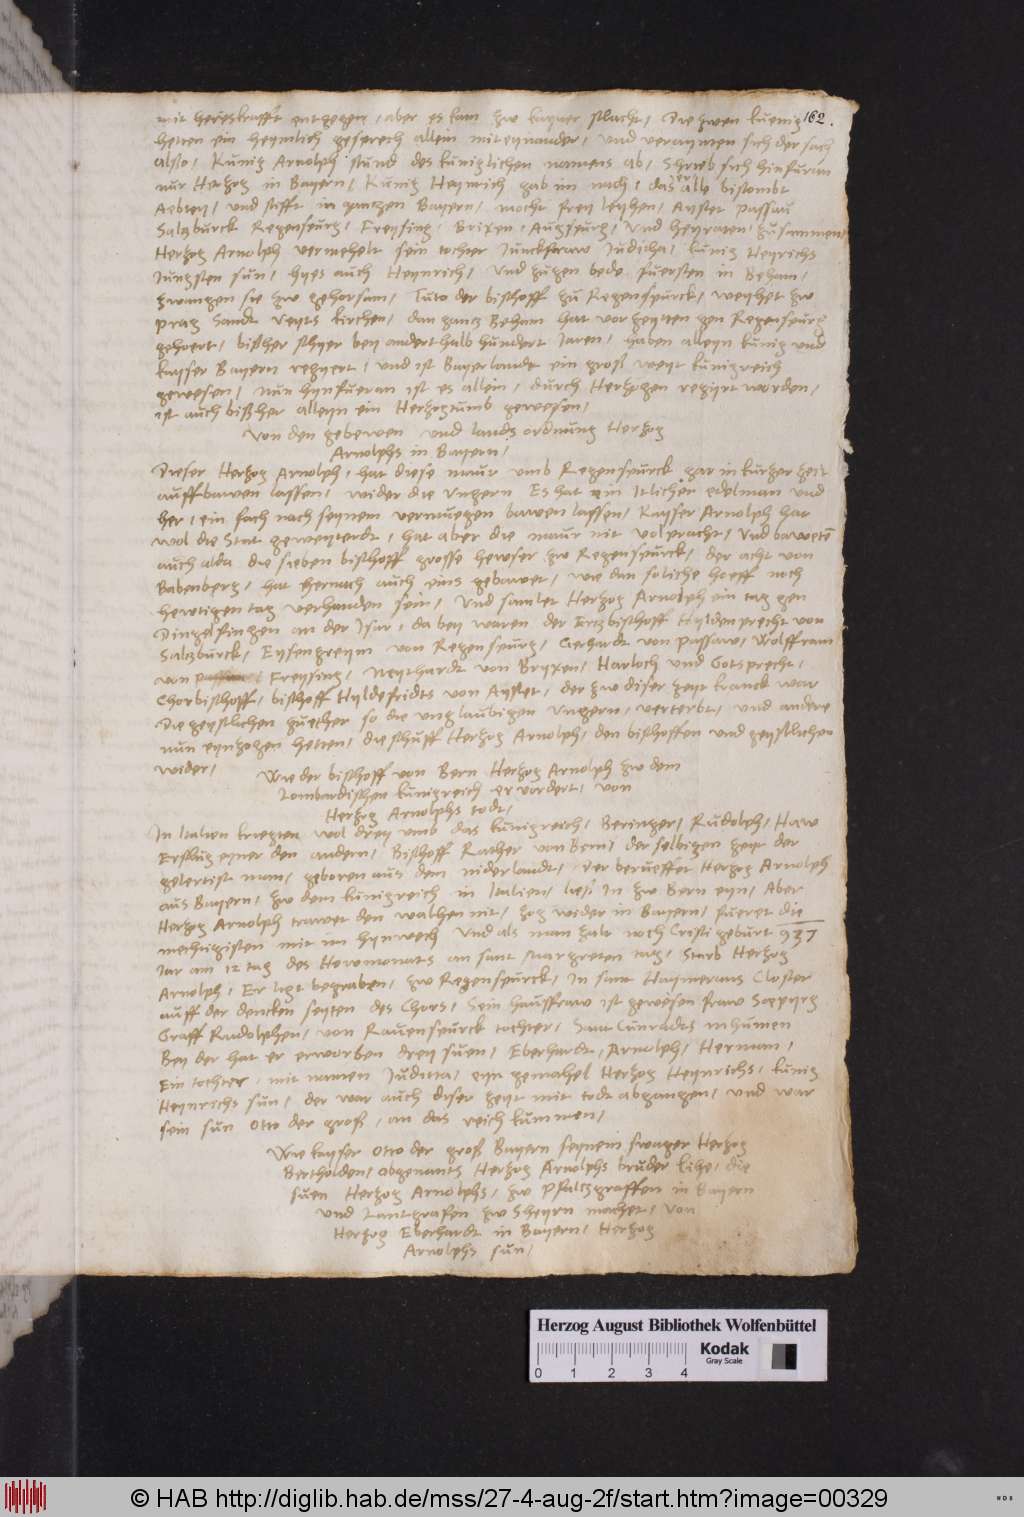 162.
mit hereskrafft entgegen, aber es kam zw kayner schlacht, Die zwen kuenig
hetten ein heymlich gesprech allein miteynander, und veraynten sich der sach
also, Künig Arnolph stund des küniglichen namens ab, Schrieb sich hinfuran
nur Herzog in Bayern, Künig Heynrich gab im nach, das er alle bistombt
Aebtey, und stifft in ganczen Bayern, mocht frey leyhen, Aystet Passau
Salzburck Regenspurg, Freysing, Brixen, Augspurg, Und heyraten zusammen
Herzog Arnolph vermehelt sein tochter Junckfraw Judicha, künig Heyrichs
Jungsten sun, hyes auch Heynrich, und zugen bede fuersten in Beham,
zwangen sie zw gehorsam, Tuto der bischoff zu Regenspurck, weyhet zw
prag Sandt veyts kirchen, dan gancz Beham hat vor zeytten gen Regenspurg
gehoert, bißher schyer bey anderthalb hundert Jaren, haben alleyn künig und
kayser Bayern regyert, und ist Bayerlandt ein groß weyt künigreich
gewesen, Nun hynfueran ist es allein, durch Herzogen regyrt worden,
ist auch bißher alleyn ein Herzogtumb gewesen,
Von den gebewen und lands ordnung Herzog
Arnolphs in Bayern,
Dieser Herzog Arnolph, hat diese maur umb Regenspurck gar in kurzer zeit
auffbawen lassen, wider die Ungern Es hat ein Itlicher edelman und
her, ein fach nach seynem vermuegen bawen lassen, Kayser Arnolph hat
wol die Stat geweyterdt, hat aber die maur nit volpracht, Und baweten
auch alda die sieben bischoff grosse hewser zw Regenspurck, der acht von
Babenberg, hat hernach auch eins gebawet, wie dan soliche hoeff noch
hewtigen tag verhanden sein, Und samlet Herzog Arnolph ein tag gen
Dingelfingen an der Isar, da bey waren der Erczbischoff Hyldenprecht von
Salczburck, Eysengreym von Regenspurg, Gerhardt von Passaw, Wolffram
von Freysing, Neythardt von Bryxen, Harloch und Gotsprecht,
Chorbischoff, bischoff Hyldefridts von Aystet, der zw diser zeyt kranck war
Die geystlichen guether so die unglaubigen Ungern, verterbt, und andere
nun eynzogen hetten, die schuff Herzog Arnolph, den bischoffen und geystlichen
wider,
Wie der bischoff von Bern Herzog Arnolph zw dem
Lombardischen künigreich ervordert, von
Herzog Arnolphs todt,
In Italien kriegten wol drey umb das künigreich, Beringer, Rudolph, Haw
Erschlug eyner den andern, Bischoff Rather von Bern, der selbigen zeyt der
gelertist man, geboren aus dem niderlandt, der berueffet Herzog Arnolph
aus Bayern, zw dem künigreich in Italien, ließ In zw Bern eyn, Aber
Herzog Arnolph trawet den walhen nit, zog wider in Bayern, fueret die
mechtigisten mit im hynwech Und als man zalt noch Cristi geburt 937
Jar am 12 tag des Hewmonats an sant Margreten tag, Starb Herzog
Arnolph, Er ligt begraben, zw Regenspurck, In sant Haymerans Closter
auff der dencken seyten des Chors, Sein haussfraw ist gewesen fraw
Graff Rudolphen, von Rauenspurck tochter, Sant Cunradts mhumen
Bey der hat er erworben drey suen, Eberhardt, Arnolph, Herman,
Ein tochter, mit namen Juditta, eyn gemahel Herzog Heynrichs, künig
Heynrichs sun, der war auch diser zeyt mit todt abgangen, und war
sein sun Otto der groß, an das reich kummen,
Wie kayser Otto der groß Bayern seynem swager Herzog
Bertholden, abgenants Herzog Arnolphs bruder lihe, die
suen Herzog Arnolphs, zw Pfalczgraffen in Bayern
und Lantgrafen zw Sheyrn machet, von
Herzog Eberhardt in Bayern, Herzog
Arnolphs sun,
Herzog August Bibliothek Wolfenbüttel
Kodak
Gray Scale
0 1 2 3 4
© HAB http://diglib.hab.de/mss/27-4-aug-2f/start.htm?image=00329